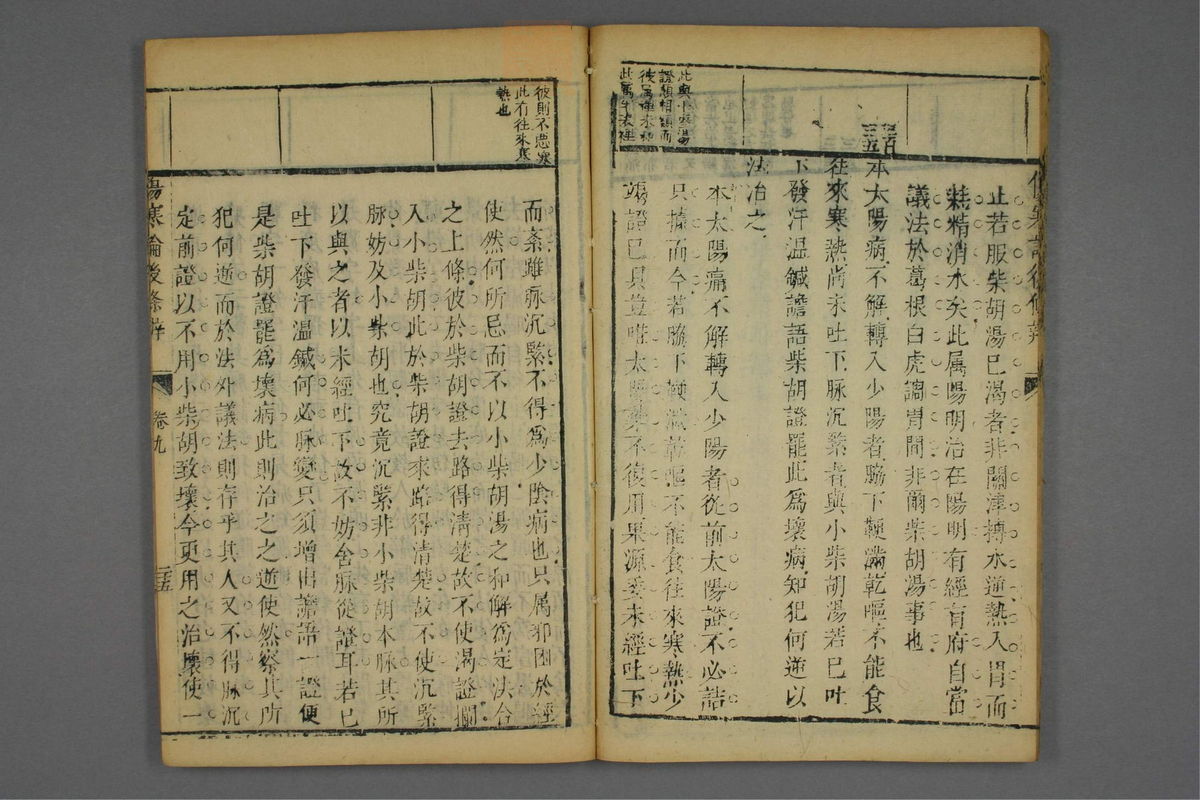 止若服柴胡湯已渴者非關津搏水逆熱入胃而
耗精消水矣此属陽明治在陽明有經有府自當
議法於葛根白虎調胃間非爾柴胡湯事也
本太陽病不解轉入少陽者脇下鞕滿乾嘔不能食
往來寒熱尚未吐下脉沉緊者與小柴胡湯若巳吐
下發汗温鍼譫語柴胡證罷此爲壞病知犯何逆以
法治之
本太陽病不解轉入少陽者從前太陽證不必詰
只據而今若脇下鞕滿乾嘔不能食往來寒熱少
陽證巳具豈唯太陽藥不復用果源委未經吐下
此與
證頗相類而
彼則不惡寒
此有往來寒
熱也
而紊雖脉沉緊不得爲少陰病也只属邪困於經
使然何所忌而不以小柴胡湯之和解爲定法合
之上條彼於柴胡證去路得清楚故不使渴證攔
入小柴胡此於柴胡證來路得清楚故不使沉緊
脉妨及小柴胡也究竟沉緊非小柴胡本脉其所
以與之者以未經吐下故不妨舍脉從證耳若巳
吐下發汗温鍼何必脉變只須增出譫語一證便
是柴胡證罷爲壞病此則治之之逆使然察其所
犯何逝而於法外議法則存乎其人又不得脉沉
定前證以不用小柴胡致壞今更用之治壞使一
傷寒論後條辨
卷九
三五